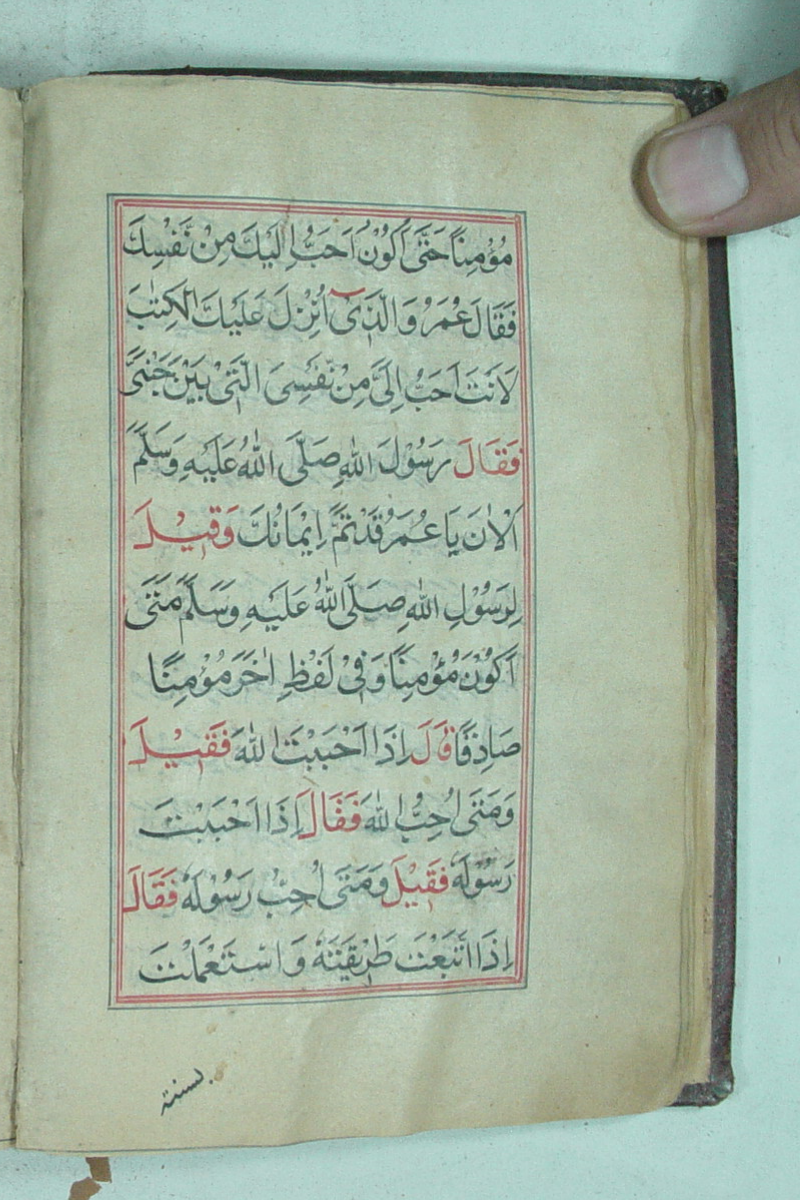 مُؤْمِنًا حَتّٰى اَكُوْنَ اَحَبُّ اِلَيْكَ مِنْ نَّفْسِكَ
فَقَالَ عُمَرُ وَالَّذِيْٓ اُنْزِلَ عَلَيْكَ الْكِتٰبَ
لَاَنْتَ اَحَبُّ اِلَيَّ مِنْ نَّفْسِيَ الَّتِيْ بَيْنَ جَنْبَيَّ
فَقَالَ رَسُوْلَ اللّٰهِ صَلَّى اللّٰهُ عَلَيْهِ وَسَلَّمَ
اَلْاٰنَ يَا عُمَرُ قَدْ تَمَّ اِيْمَانُكَ وَقِيْلَ
لِرَسُوْلِ اللّٰهِ صَلَّى اللّٰهُ عَلَيْهِ وَسَلَّمَ مَتٰى
اَكُوْنَ مُؤْمِنًا وَفِيْ لَفْظٍ اٰخَرَ مُؤْمِنًا
صَادِقًا قَالَ اِذَا اَحْبَبْتَ اللّٰهَ فَقِيْلَ
وَمَتٰى اُحِبُّ اللّٰهَ فَقَالَ اِذَا اَحْبَبْتَ
رَسُوْلَهٗ فَقِيْلَ وَمَتٰى اُحِبُّ رَسُوْلَهٗ فَقَالَ
اِذَا اتَّبَعْتَ طَرِيْقَتَهٗ وَاسْتَعْمَلْتَ
بسنته